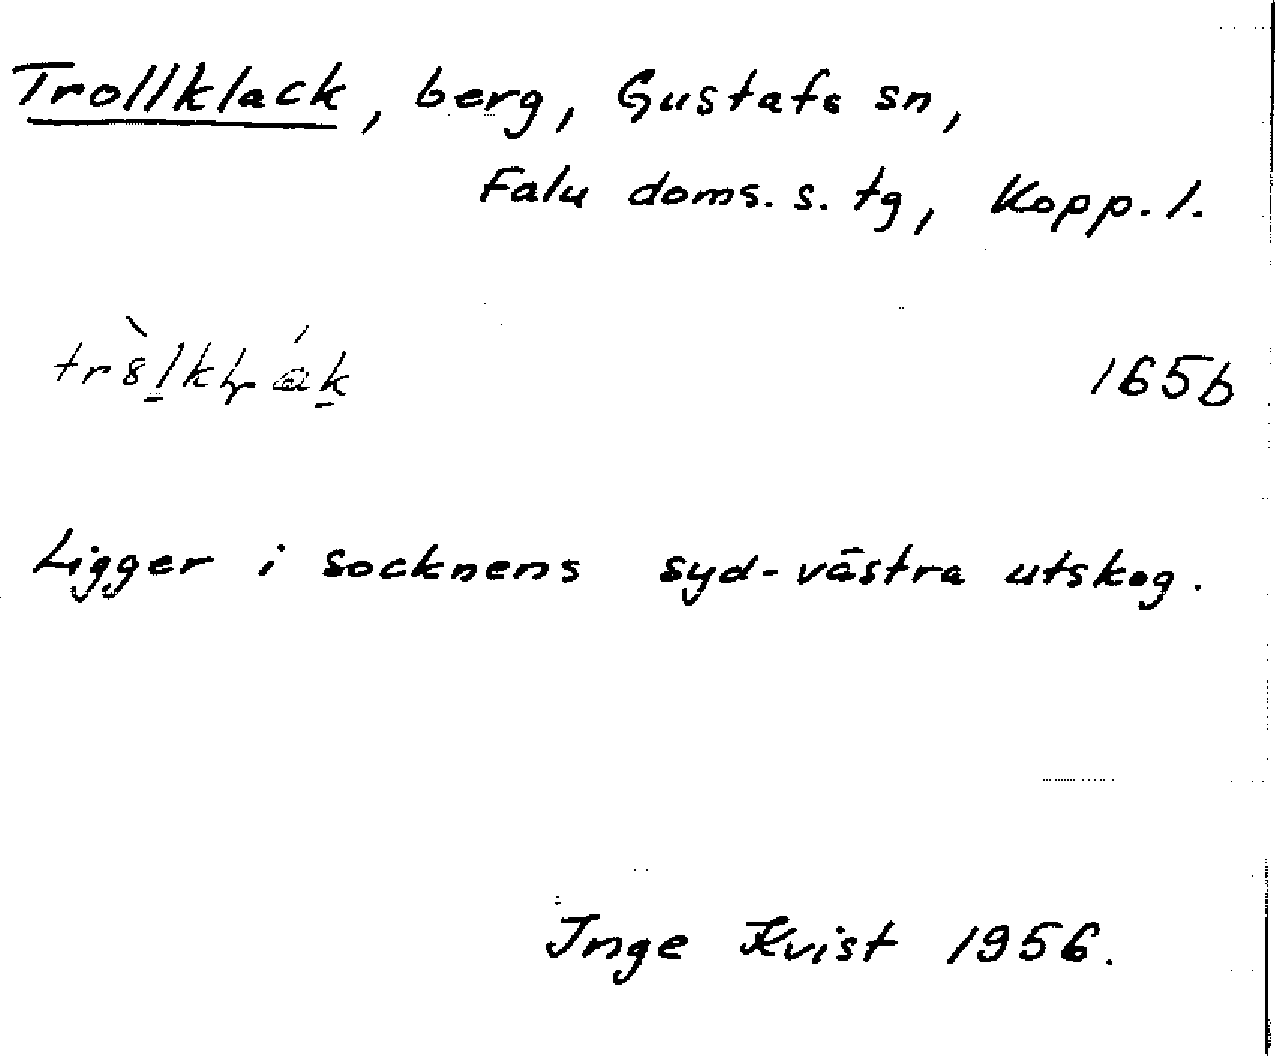 Trollklack, berg, Gustafs sn,
Falu doms. s. tg, Kopp. l.
165b
Ligger i socknens syd-västra utskog.
Inge Kvist 1956.